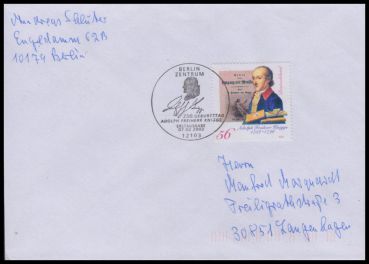 Andreas Schlüter
Engeldamm 62B
10179 Berlin
BERLIN
ZENTRUM
250. GEBURTSTAG
ADOLPH FREIHERR KNIGGE
ERSTAUSGABE
12103
56
Adolph Freiherr Knigge
1752-1796
Herrn
Manfred Marquardt
Freiligrathstraße 3
30851 Langenhagen